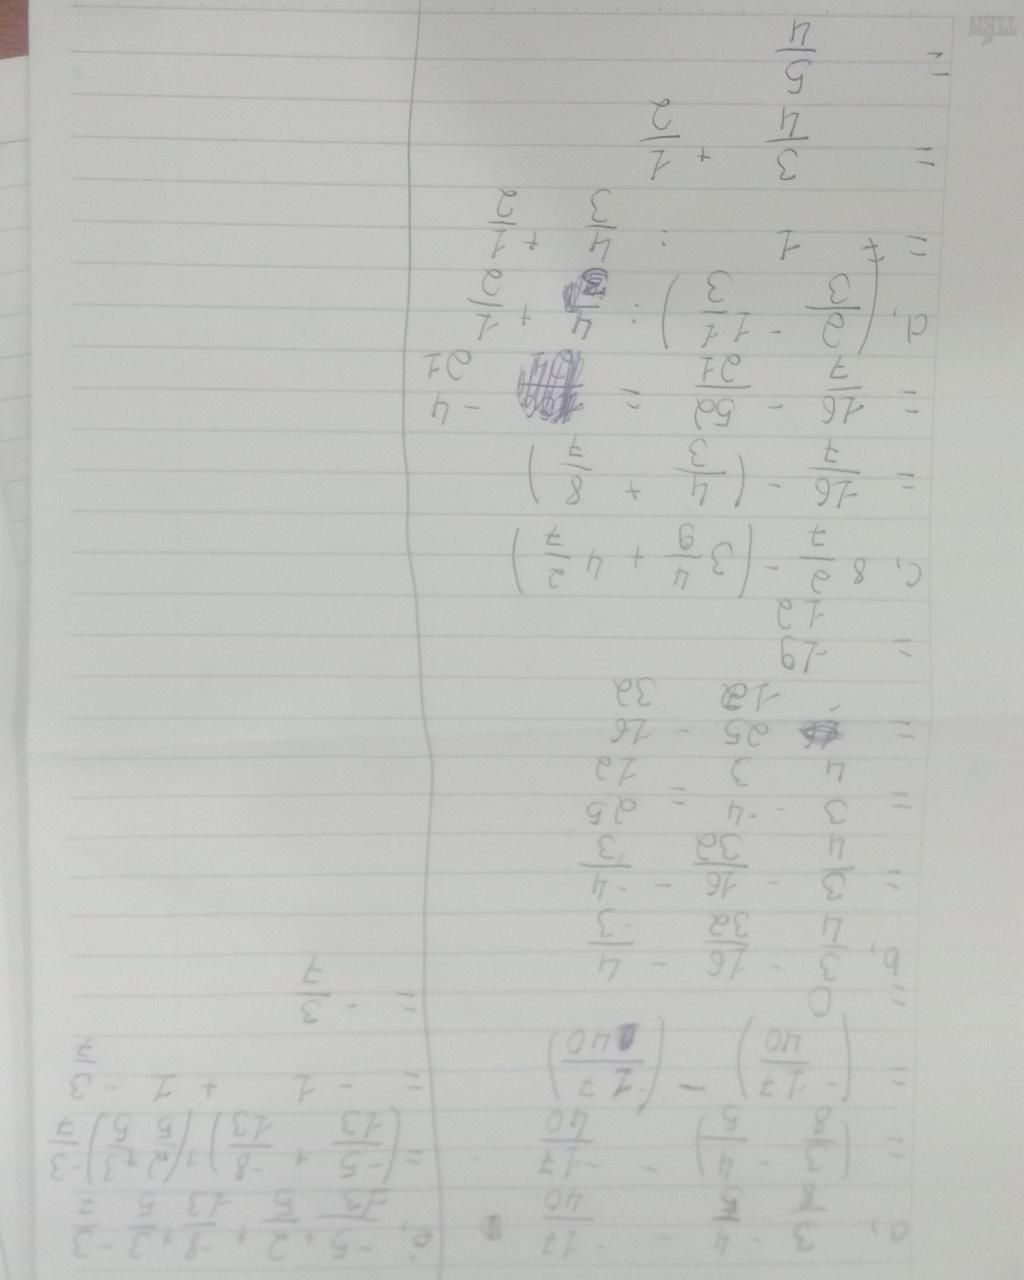 a, 3/8 - 4/5 - -17/40
= (3/8 - 4/5) - -17/40
= (-17/40) - (17/40)
= 0
b, 3/4 - 16/32 - 4/-3
= 3/4 - 16/32 - -4/3
= 3/4 - -4/3 = 25/12
= 25/12 - 16/32
= 19/12
c, 8 2/7 - (3 4/9 + 4 2/7)
= 16/7 - (4/3 + 8/7)
= 16/7 - 52/21 = -4/21
d, (2/3 - 11/3) : 4/3 + 1/2
= 1 : 4/3 + 1/2
= 3/4 + 1/2
= 5/4
e, -5/13 + 2/5 + -8/13 + 3/5 - 3/7
= (-5/13 + -8/13) + (2/5 + 3/5) - 3/7
= -1 + 1 - 3/7
= -3/7